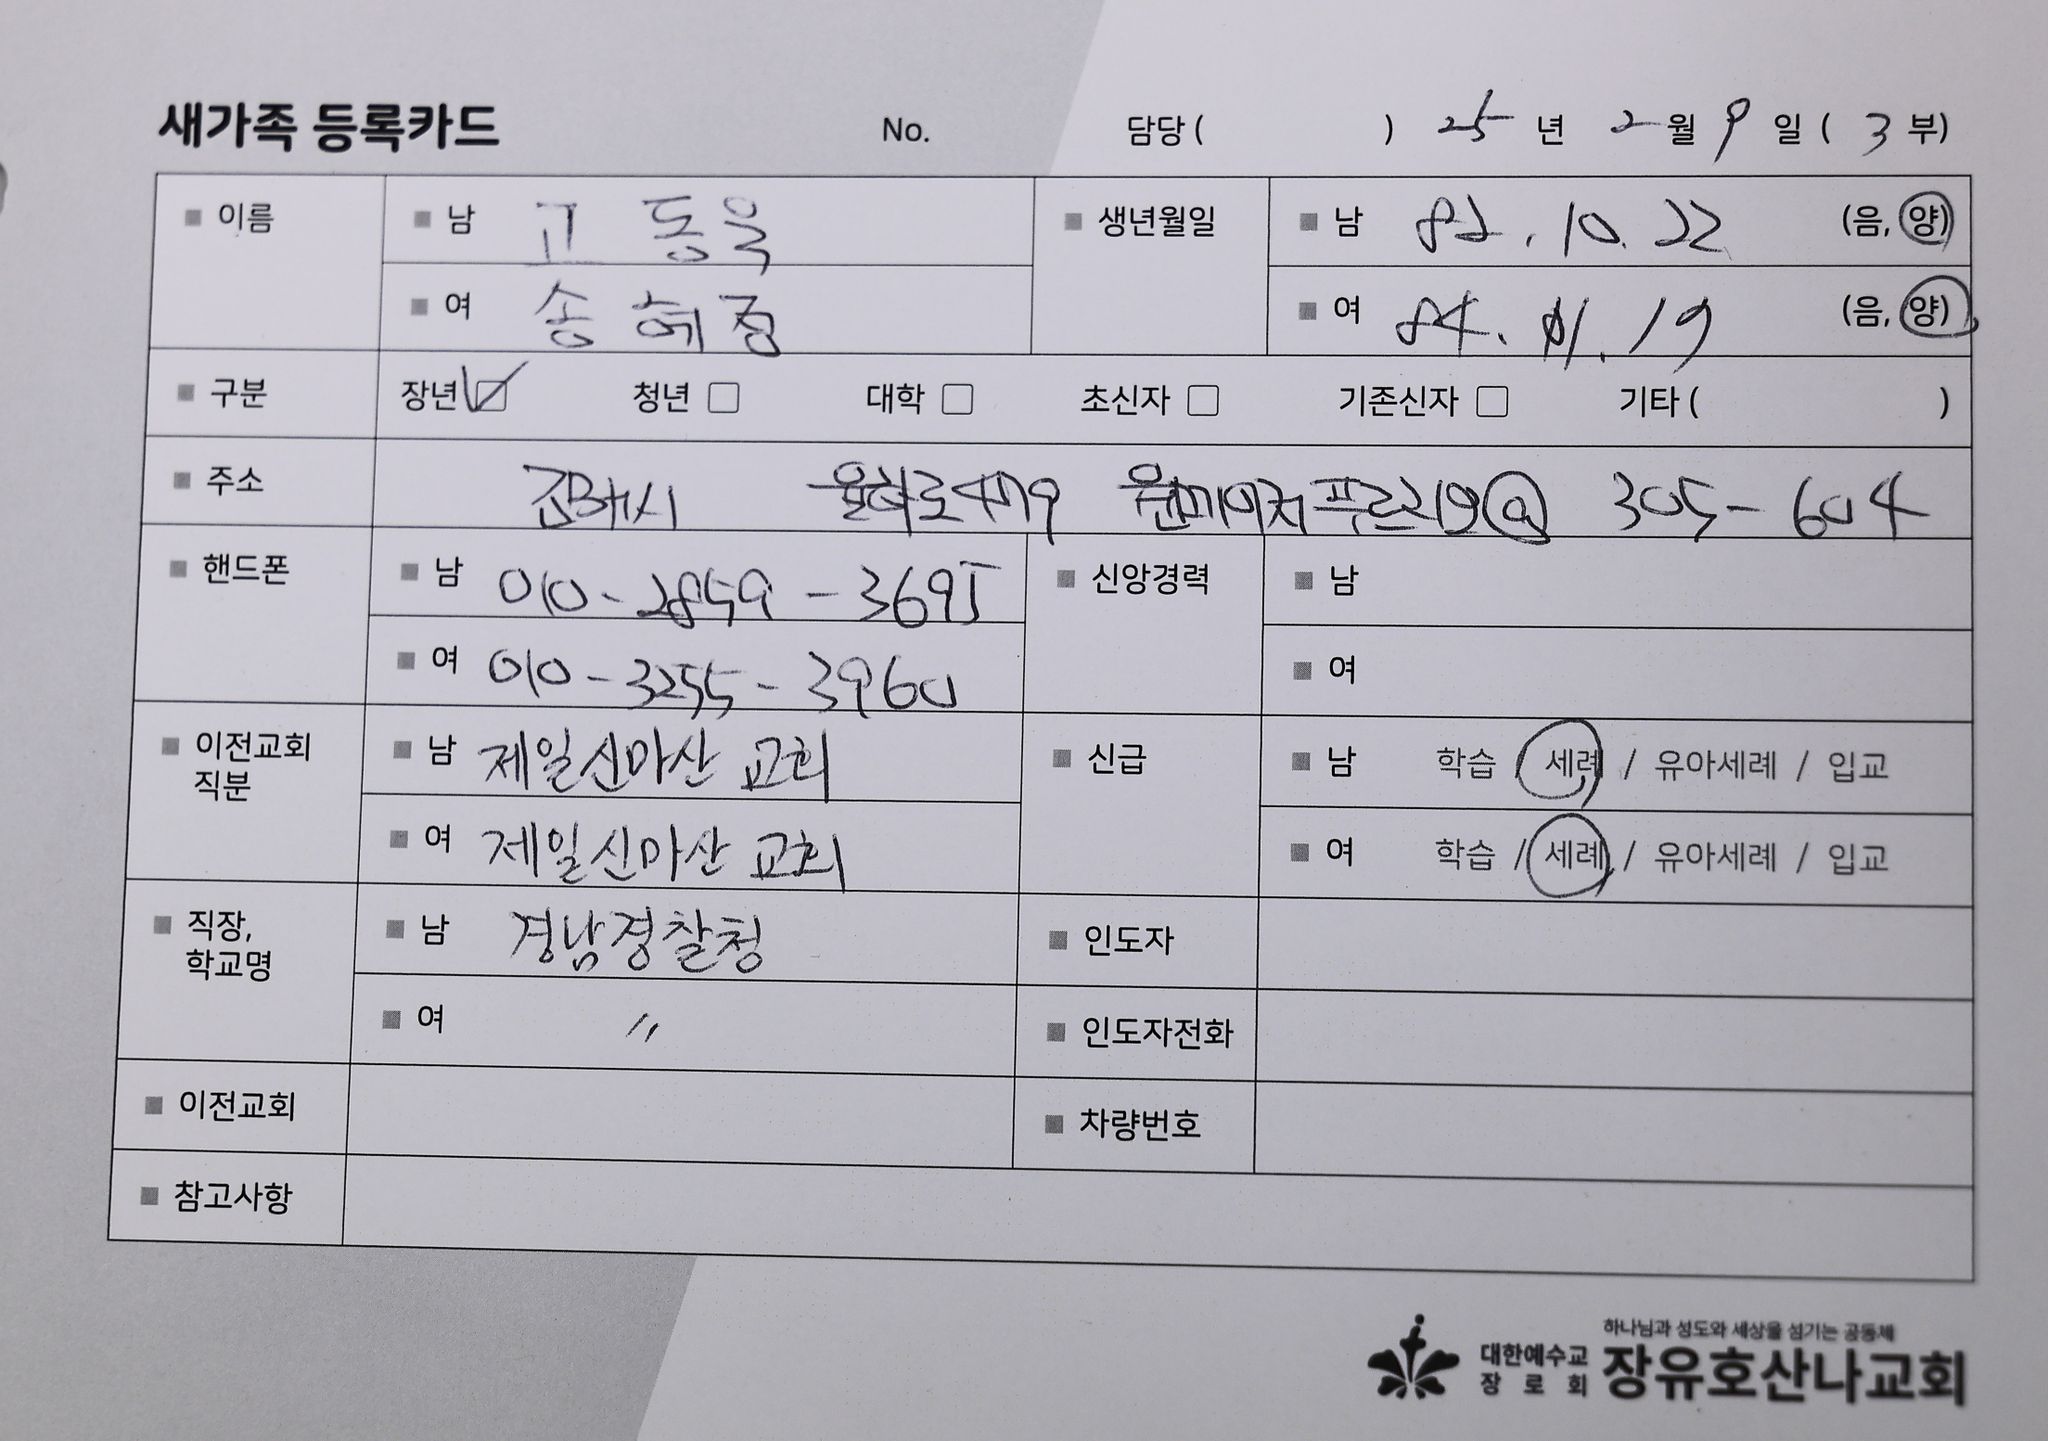 새가족 등록카드 No. 담당 ( ) 25 년 2 월 9 일 ( 3 부)
이름 남 고동욱 생년월일 남 82. 10. 22 (음, 양)
여 송혜정 여 84. 01. 19 (음, 양)
구분 장년 청년 대학 초신자 기존신자 기타 ( )
주소 김해시 율하로 479 원메이저푸르지오 @ 305-604
핸드폰 남 010-2859-3695 신앙경력 남
여 010-3255-3960 여
이전교회 직분 남 제일신마산 교회 신급 남 학습 / 세례 / 유아세례 / 입교
여 제일신마산 교회 여 학습 / 세례 / 유아세례 / 입교
직장, 학교명 남 경남경찰청 인도자
여 〃 인도자전화
이전교회 차량번호
참고사항
하나님과 성도와 세상을 섬기는 공동체
대한예수교 장로회 장유호산나교회